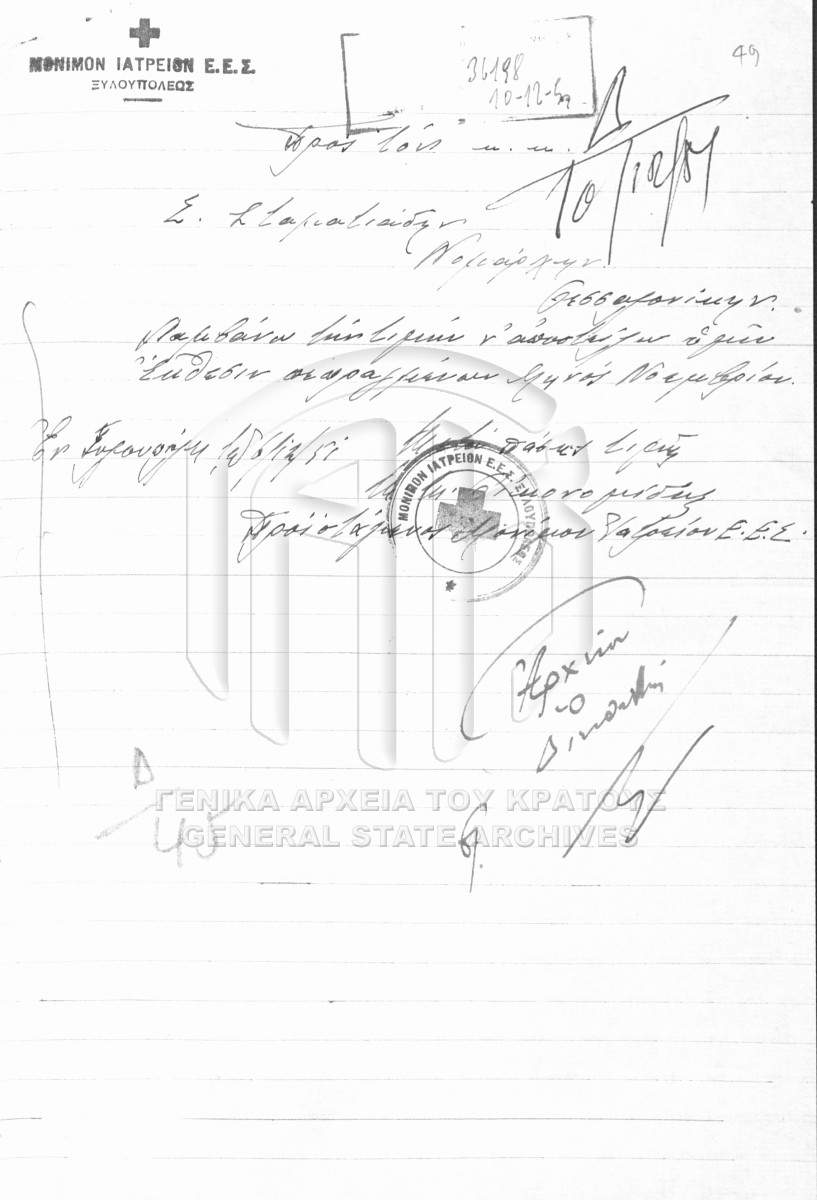 ΜΟΝΙΜΟΝ ΙΑΤΡΕΙΟΝ Ε.Ε.Σ.
ΞΥΛΟΥΠΟΛΕΩΣ
49
36198
10-12-51
Δ
10/12/51
Προς τόν κ. κ.
Σ. Σταματιάδην
Νομάρχην
Θεσσαλονίκην.
Λαμβάνω τήν τιμήν ν' αποστείλω υμίν
Έκθεσιν πεπραγμένων Μηνός Νοεμβρίου.
Εν Ξυλουπόλει τη 6/12/51
Μετά πάσης τιμής
Οικονομίδης
Προϊστάμενος Μονίμου Ιατρείου Ε.Ε.Σ.
ΜΟΝΙΜΟΝ ΙΑΤΡΕΙΟΝ Ε.Ε.Σ. ΞΥΛΟΥΠΟΛΕΩΣ
Αρχείον
Δ
45
ΓΕΝΙΚΑ ΑΡΧΕΙΑ ΤΟΥ ΚΡΑΤΟΥΣ
GENERAL STATE ARCHIVES